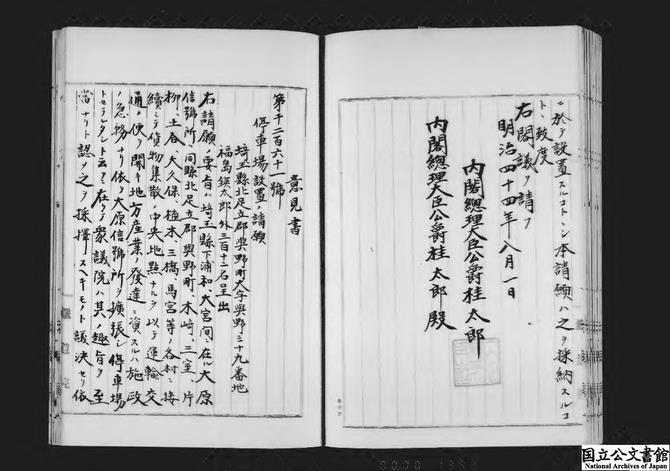 ニ於テ設置スルコトヽシ本請願ハ之ヲ採納スルコ
トヽ致度
右閣議ヲ請フ
明治四十四年八月一日
内閣總理大臣公爵桂太郎
内閣總理大臣公爵桂太郎殿
意見書
第千二百六十一號
停車場設置ノ請願
埼玉縣北足立郡與野町大字與野三十九番地
福島鎮太郎外三百十二名呈出
右請願ノ要旨ハ埼玉縣下浦和大宮間ニ在ル大原
信號所ハ同縣北足立郡與野町、木崎、三室、片
柳、土合、大久保、植水、三橋、馬宮等ノ各村ニ接
續シテ貨物集散ノ中央地點ナルヲ以テ運輸交
通ノ便ヲ開キ地方産業ノ發達ニ資スルハ施政
ノ急務ナリ依テ大原信號所ヲ擴張シ停車場
トセラレタシト云フニ在リテ衆議院ハ其ノ趣旨ヲ至
當ナリト認メ之ヲ採擇スヘキモノト議決セリ依
国立公文書館
National Archives of Japan